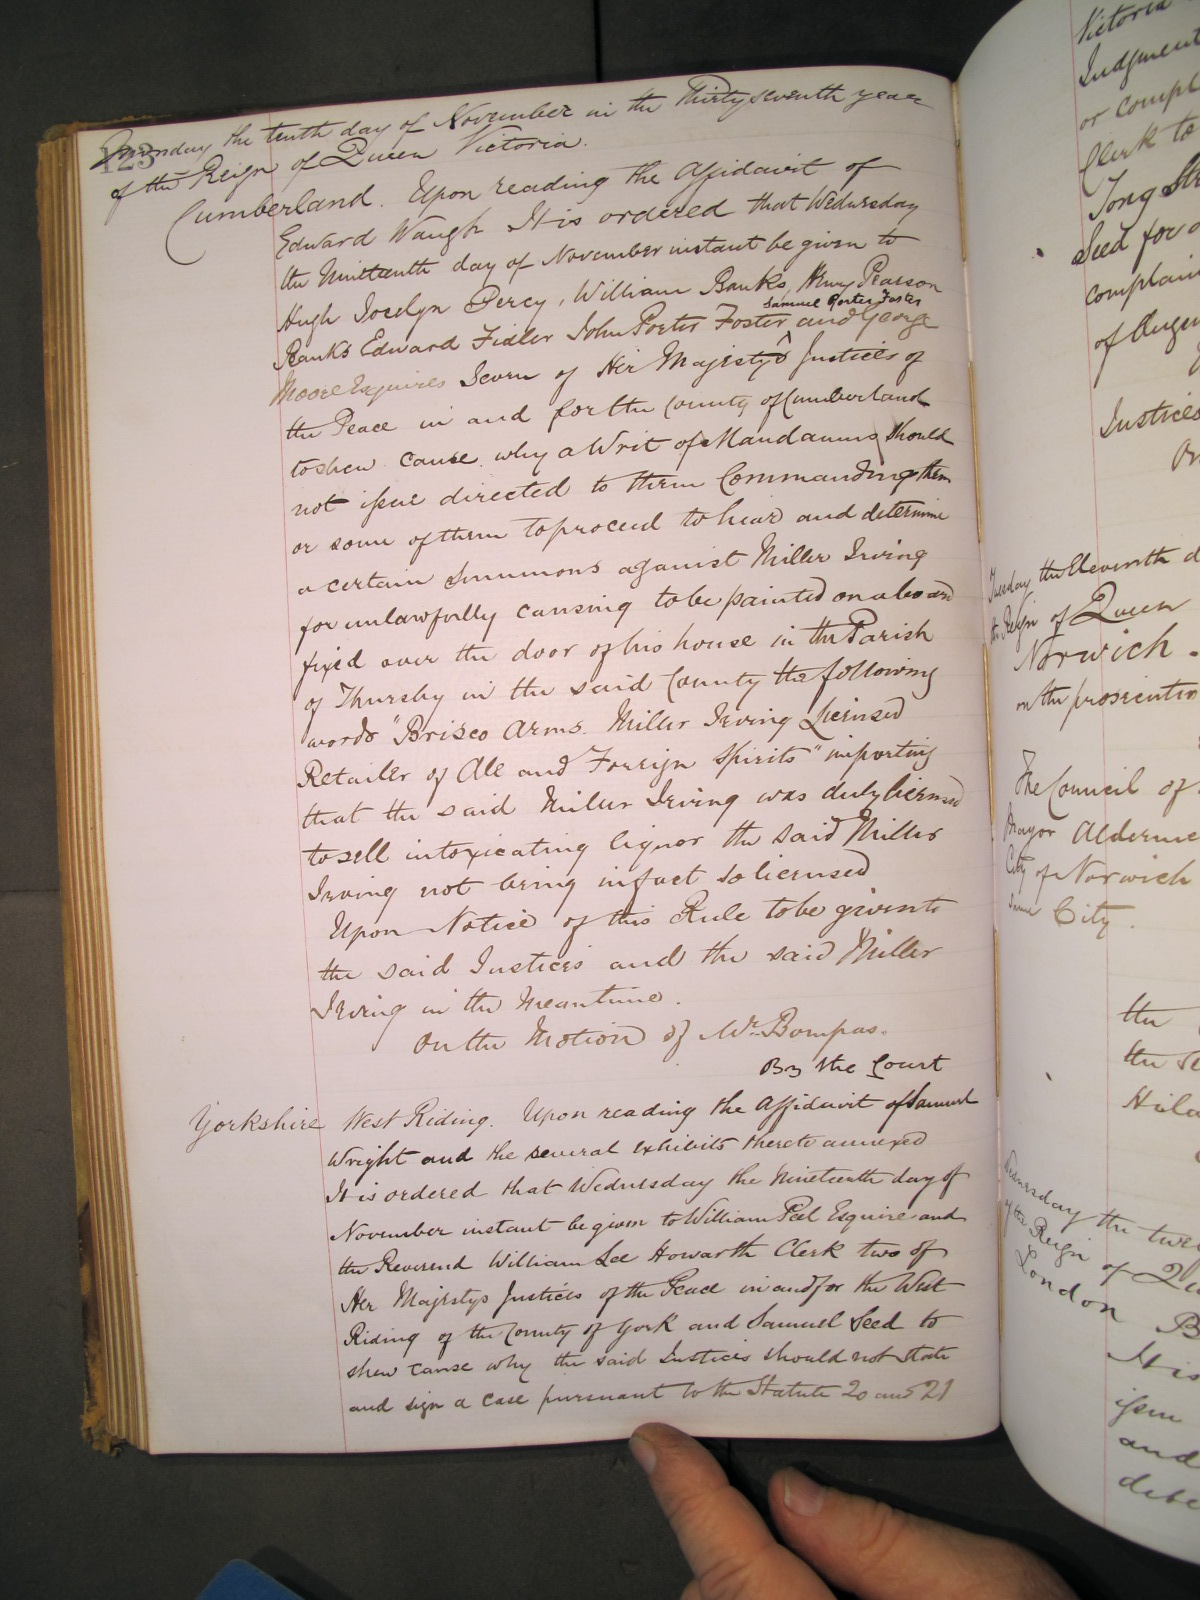 123
Monday the tenth day of November in the Thirtyseventh year
of the Reign of Queen Victoria.
Cumberland. Upon reading the Affidavit of
Edward Waugh It is ordered that Wednesday
the Nineteenth day of November instant be given to
Hugh Jocelyn Percy, William Banks, Henry Pearson
Samuel Porter Foster
Banks Edward Fidler John Porter Foster and George
Moore Esquires Seven of Her Majesty's Justices of
the Peace in and for the County of Cumberland
to shew cause why a Writ of Mandamus should
not issue directed to them Commanding them
or some of them to proceed to hear and determine
a certain Summons against Miller Irving
for unlawfully causing to be painted on a board
fixed over the door of his house in the Parish
of Thursby in the said County the following
words "Brisco Arms. Miller Irving Licensed
Retailer of Ale and Foreign Spirits" importing
that the said Miller Irving was duly licensed
to sell intoxicating liquor the said Miller
Irving not being in fact so licensed
Upon Notice of this Rule to be given to
the said Justices and the said Miller
Irving in the meantime.
On the Motion of Mr. Bompas.
By the Court
Yorkshire West Riding. Upon reading the Affidavit of Samuel
Wright and the several exhibits thereto annexed
It is ordered that Wednesday the Nineteenth day of
November instant be given to William Peel Esquire and
the Reverend William Lee Howarth Clerk two of
Her Majestys Justices of the Peace in and for the West
Riding of the County of York and Samuel Seed to
shew cause why the said Justices should not state
and sign a case pursuant to the Statute 20 and 21
Victoria
Judgment
or compl
Clerk to
Tong Str
Seed for
complain
of Augu
Justices
On
Tuesday the Eleventh d
the Reign of Queen
Norwich.
on the prosecution
The Council of
Mayor Alderme
City of Norwich
same City.
the
the se
Hila
Wednesday the twe
of the Reign of Qu
London B
It is
issu
and
debt